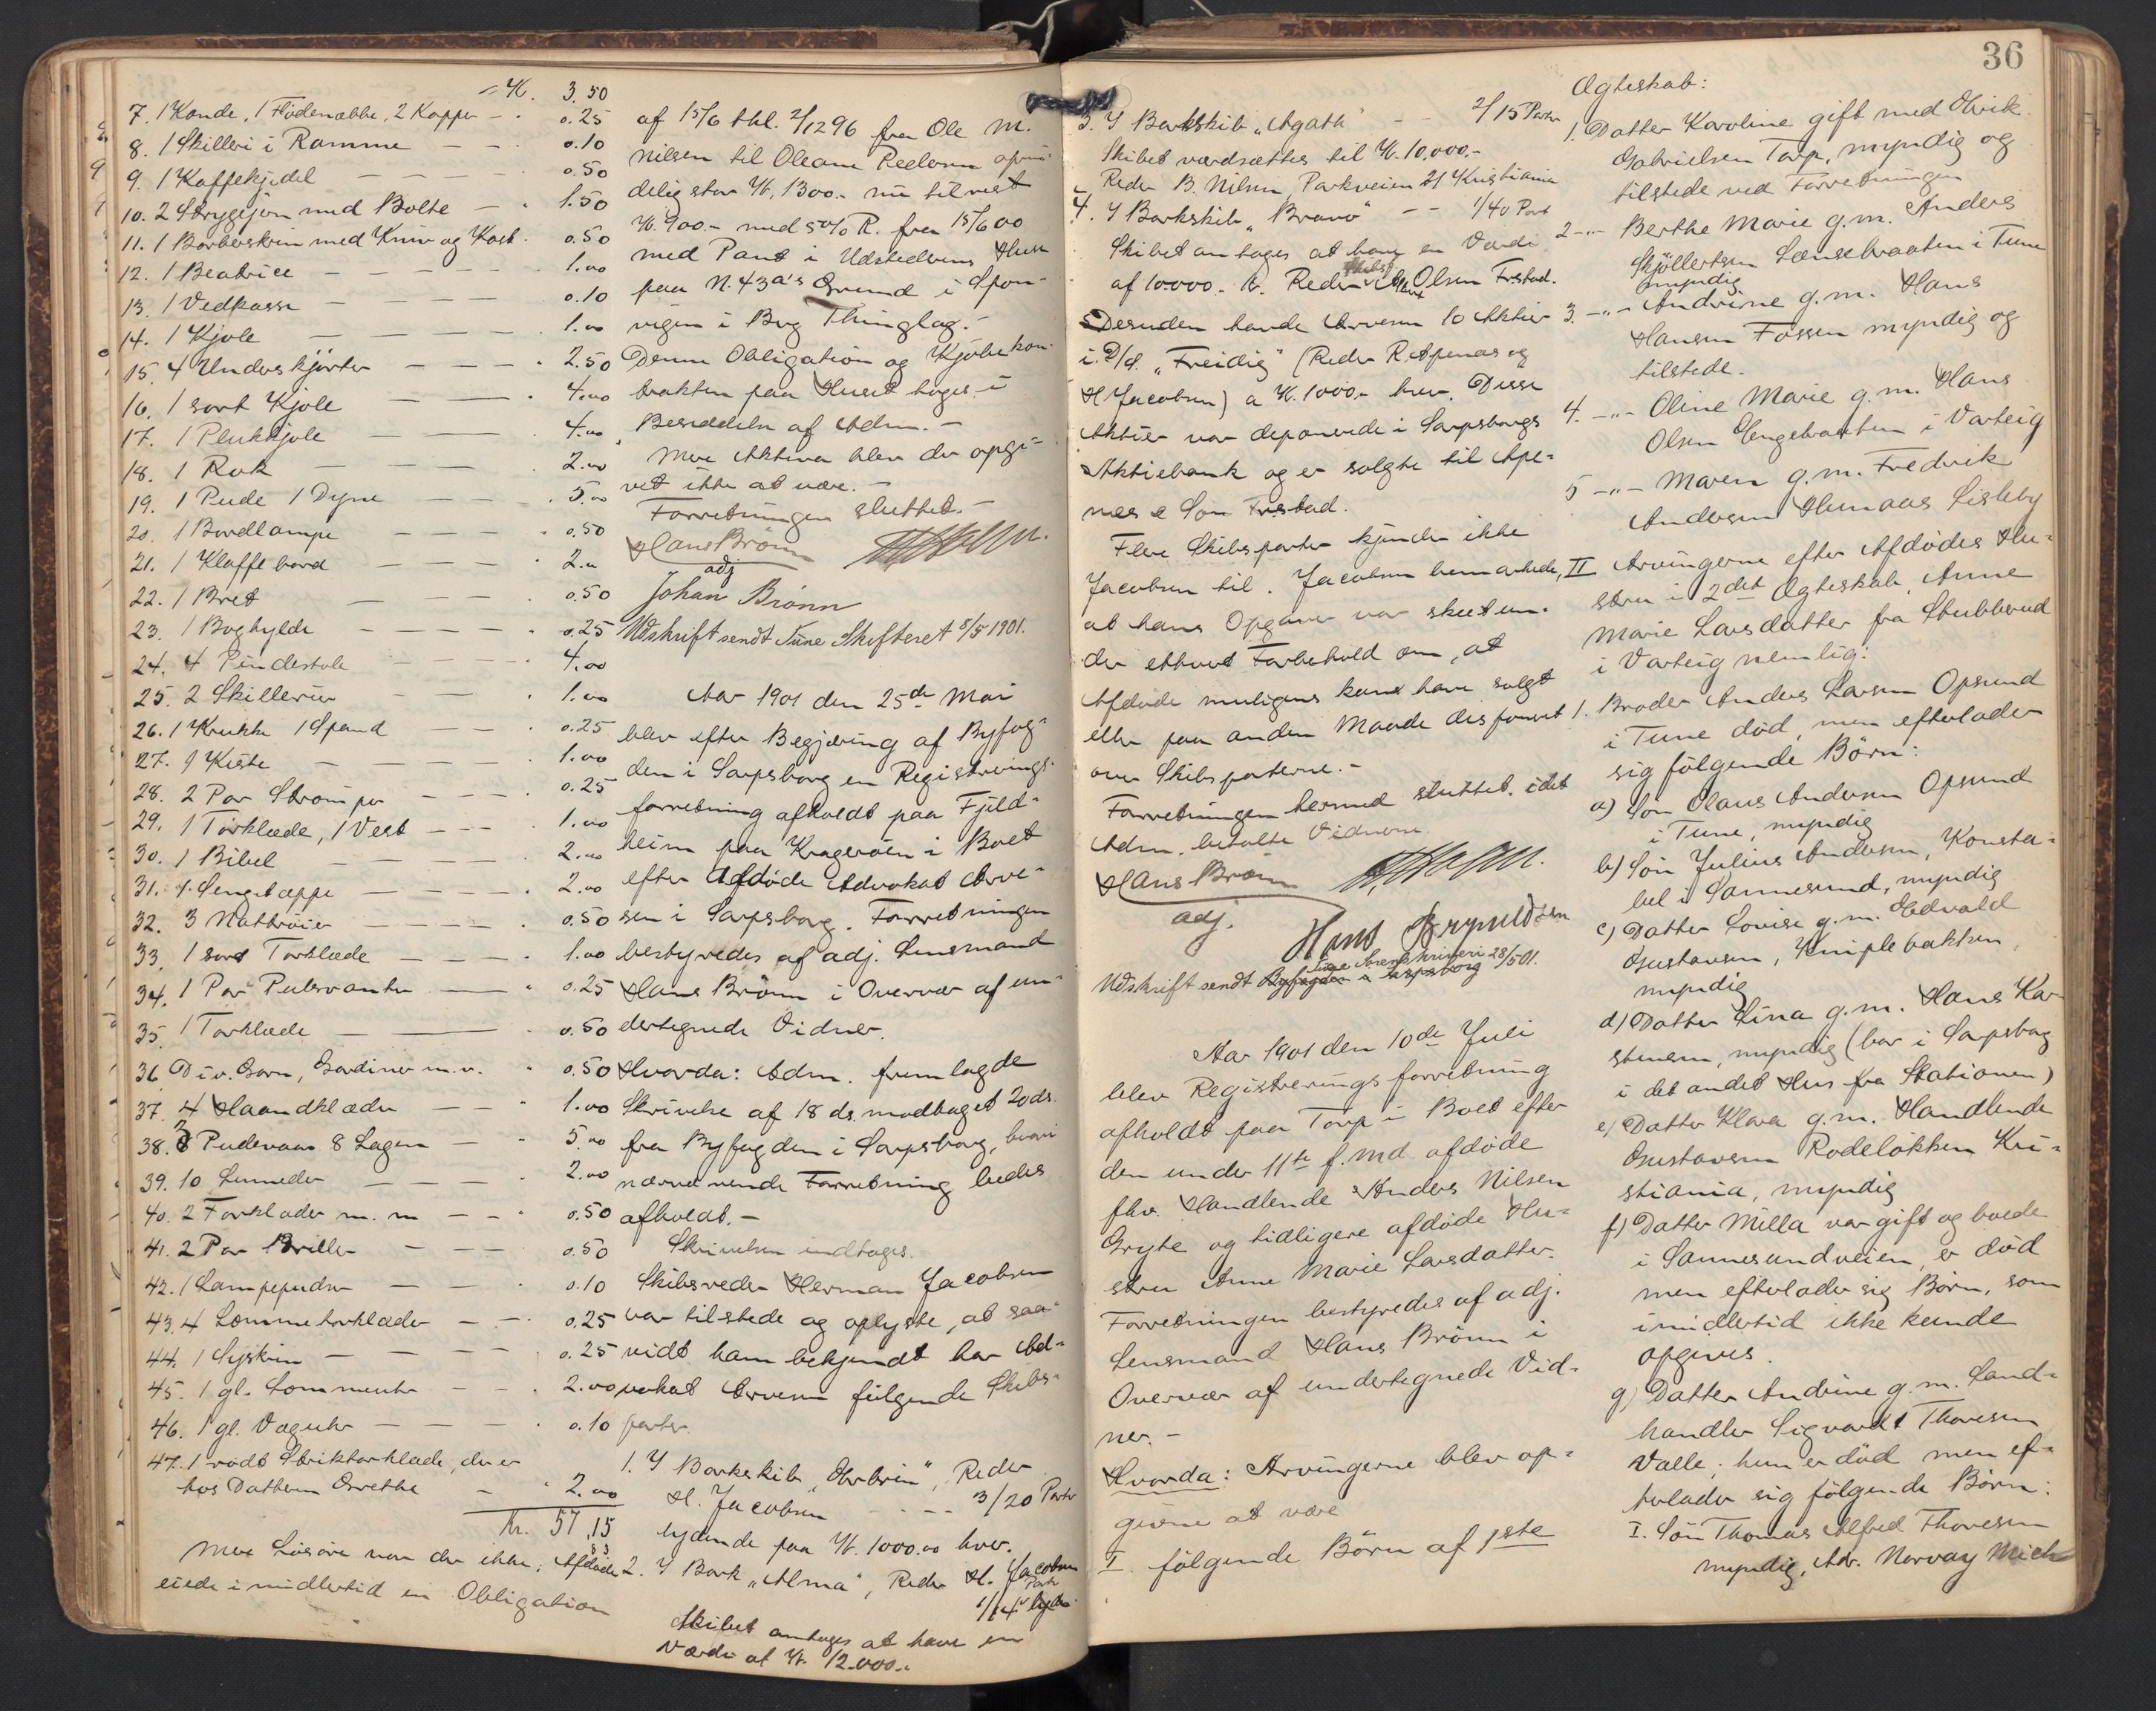 Kr. 3.50
7. 1 Kande, 1 Flödenæbbe, 2 Kopper - 0.25
8. 1 Skilleri i Ramme - 0.10
9. 1 Kaffekjedel - 0.50
10. 2 Strygejern med Bolte - 1.50
11. 1 Barberskrin med Kniv og Kost 0.50
12. 1 Beatrice - 1.00
13. 1 Vedkasse - 0.10
14. 1 Kjole - 1.00
15. 4 Underskjörter - 2.50
16. 1 sort Kjole - 4.00
17. 1 Pluskkjole - 4.00
18. 1 Rok - 2.00
19. 1 Pude 1 Dyne - 5.00
20. 1 Bordlampe - 0.50
21. 1 Klaffebord - 2.-
22. 1 Bret - 0.50
23. 1 Boghylde - 0.25
24. 4 Pindestole - 4.00
25. 2 Skillerier - 1.00
26. 1 Krukke 1 Spand - 0.25
27. 1 Kiste - 1.00
28. 2 Par Strömper - 0.25
29. 1 Törklæde, 1 Vest - 1.00
30. 1 Bibel - 2.00
31. 1 Sengetæppe - 2.00
32. 3 Nattröier - 0.50
33. 1 sort Törklæde - 1.00
34. 1 Par Pulsvanter - 0.25
35. 1 Törklæde - 0.50
36. Div. Garn, Gardiner m.v. 0.50
37. 4 Haandklæder - 1.00
38. 3 Pudevaar 8 Lagen - 5.00
39. 10 Linneder - 2.00
40. 2 Forklæder m. m - 0.50
41. 2 Par Briller - 0.50
42. 1 Lampepuder - 0.10
43. 4 Lommetörklæder - 0.25
44. 1 Syskrin - 0.25
45. 1 gl. Lommeuhr - 2.00
46. 1 gl. Væguhr - 0.10
47. 1 rödt Striktörklæde, der er
hos Datteren Grethe - 2.00
Kr. 57,15
Mere Lösöre var der ikke; Afdöde
eiede imidlertid en Obligation
af 15/6 thl. 2/12 96 fra Ole M.
Nilsen til Oleane Pedersen oprin-
delig stor Kr. 1300.- nu tilrest
Kr. 900.- med 5% R. fra 15/6 00
med Pant i Udstederens Huse
paa N. 43 a's Grund i Spon-
vigen i Berg Thinglag.-
Denne Obligation og Kjöbekon-
trakten paa Huset toges i
Besiddelse af Adm.-
Mere Aktiva blev der opgi-
vet ikke at være.-
Forretningen sluttet.-
Hans Brönn
adj
Johan Brönn
Udskrift sendt Tune Skifteret 8/5 1901.
Aar 1901 den 25de Mai
blev efter Begjæring af Byfog-
den i Sarpsborg en Registrerings-
forretning afholdt paa Fjeld-
heim paa Krageröen i Boet
efter afdöde Advokat Arve-
sen i Sarpsborg. Forretningen
bestyredes af adj. Lensmand
Hans Brönn i Overvær af un-
dertegnede Vidner.
Hvorda: Adm. fremlagde
Skrivelse af 18 ds. modtaget 20 ds.
fra Byfogden i Sarpsborg, hvori
nærværende Forretning bedes
afholdt.-
Skrivelsen indtages.
Skibsreder Herman Jacobsen
var tilstede og oplyste, at saa-
vidt ham bekjendt har Ad-
vokat Arvesen fölgende Skibs-
parter
1. I Barkskib "Hebrin", Reder
H. Jacobsen - 3/20 Parter
lydende paa Kr. 1000.00 hver.
2. I Bark "Alma", Reder H. Jacobsen
1/14 Part
Skibet antages at have en
Værdi af Kr. 12.000.-
36
3. I Barkskib "Agath" - 2/15 Parter
Skibet værdsættes til Kr. 10,000.-
Reder B. Nilsen Parkveien 21 Kristiania
4. I Barkskib "Bravo" - 1/40 Part
Skibet antages at have en Værdi
af 10.000. Kr. Reder Olsen Frstad.
5. Desuden havde Arvesen 10 Aktier
i D/S. "Freidig" (Reder R. Apenæs og
H Jacobsen) a Kr. 1000.- hver. Disse
Aktier var deponerede i Sarpsborgs
Aktiebank og er solgte til Ape-
næs & Sön Frstad.
Flere Skibsparter kjender ikke
Jacobsen til. Jacobsen bemærkede,
at hans Opgaver var skeet un-
der ethvert Forbehold om, at
Afdöde muligens kan have solgt
eller paa anden Maade disponeret
over Skibsparterne.-
Forretningen hermed sluttet, idet
Adm. betalte Vidnerne
Hans Brönn
adj.
Hans Brynildsen
Udskrift sendt Byfogden i Sarpsborg Tune Sorenskriveri 28/5 01.
Aar 1901 den 10de Juli
blev Registreringsforretning
afholdt paa Torp i Boet efter
den under 11te f. md. afdöde
fhv. Handlende Anders Nilsen
Gryte og tidligere afdöde Hu-
stru Anne Marie Larsdatter.
Forretningen bestyredes af adj.
Lensmand Hans Brönn i
Overvær af undertegnede Vid-
ner.-
Hvorda: Arvingerne blev op-
givne at være
I. fölgende Börn af 1ste
Ægteskab:
1. Datter Karoline gift med Ulrik
Gabrielsen Torp, myndig og
tilstede ved Forretningen
2 -"- Berthe Marie g.m. Anders
Skjöllertsen Lensebraaten i Tune
myndig
3. -"- Andrine g.m. Hans
Hansen Fossen myndig og
tilstede.
4. -"- Oline Marie g.m. Hans
Olsen Engebraaten i Varteig
5 -"- Maren g.m. Fredrik
Andersen Humaas Lisleby
II Arvingerne efter Afdödes Hu-
stru i 2det Ægteskab, Anne
Marie Larsdatter fra Stubberud
i Varteig nemlig:
1. Broder Anders Larsen Opsund
i Tune död, men efterlader
sig fölgende Börn:
a) Sön Olaus Andersen Opsund
i Tune, myndig
b) Sön Julius Andersen, Konsta-
bel i Sannesund, myndig
c) Datter Lovise g.m. Edvald
Gustavsen, Kniplebakken,
myndig
d) Datter Lina g.m. Hans Kar-
stensen, myndig (bor i Sarpsborg
i det andet Hus fra Stationen)
e) Datter Klara g.m. Handlende
Gustavsen Rodelökken Kri-
stiania, myndig
f) Datter Milla var gift og boede
i Sannesundveien, er död
men efterlader sig Börn, som
imidlertid ikke kunde
opgives.
g) Datter Andrine g.m. Land-
handler Sigvardt Thoresen
Valle; hun er död men ef-
terlader sig fölgende Börn:
I. Sön Thomas Alfred Thoresen
myndig, Adr. Norvay Mich